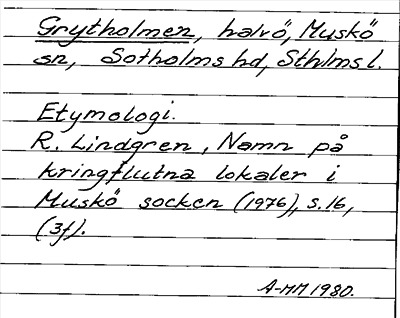 Grytholmen, halvö, Muskö
sn, Sotholms hd, Sthlms l.
Etymologi.
R. Lindgren, Namn på
kringflutna lokaler i
Muskö socken (1976), s. 16,
(3f).
A-MM 1980.